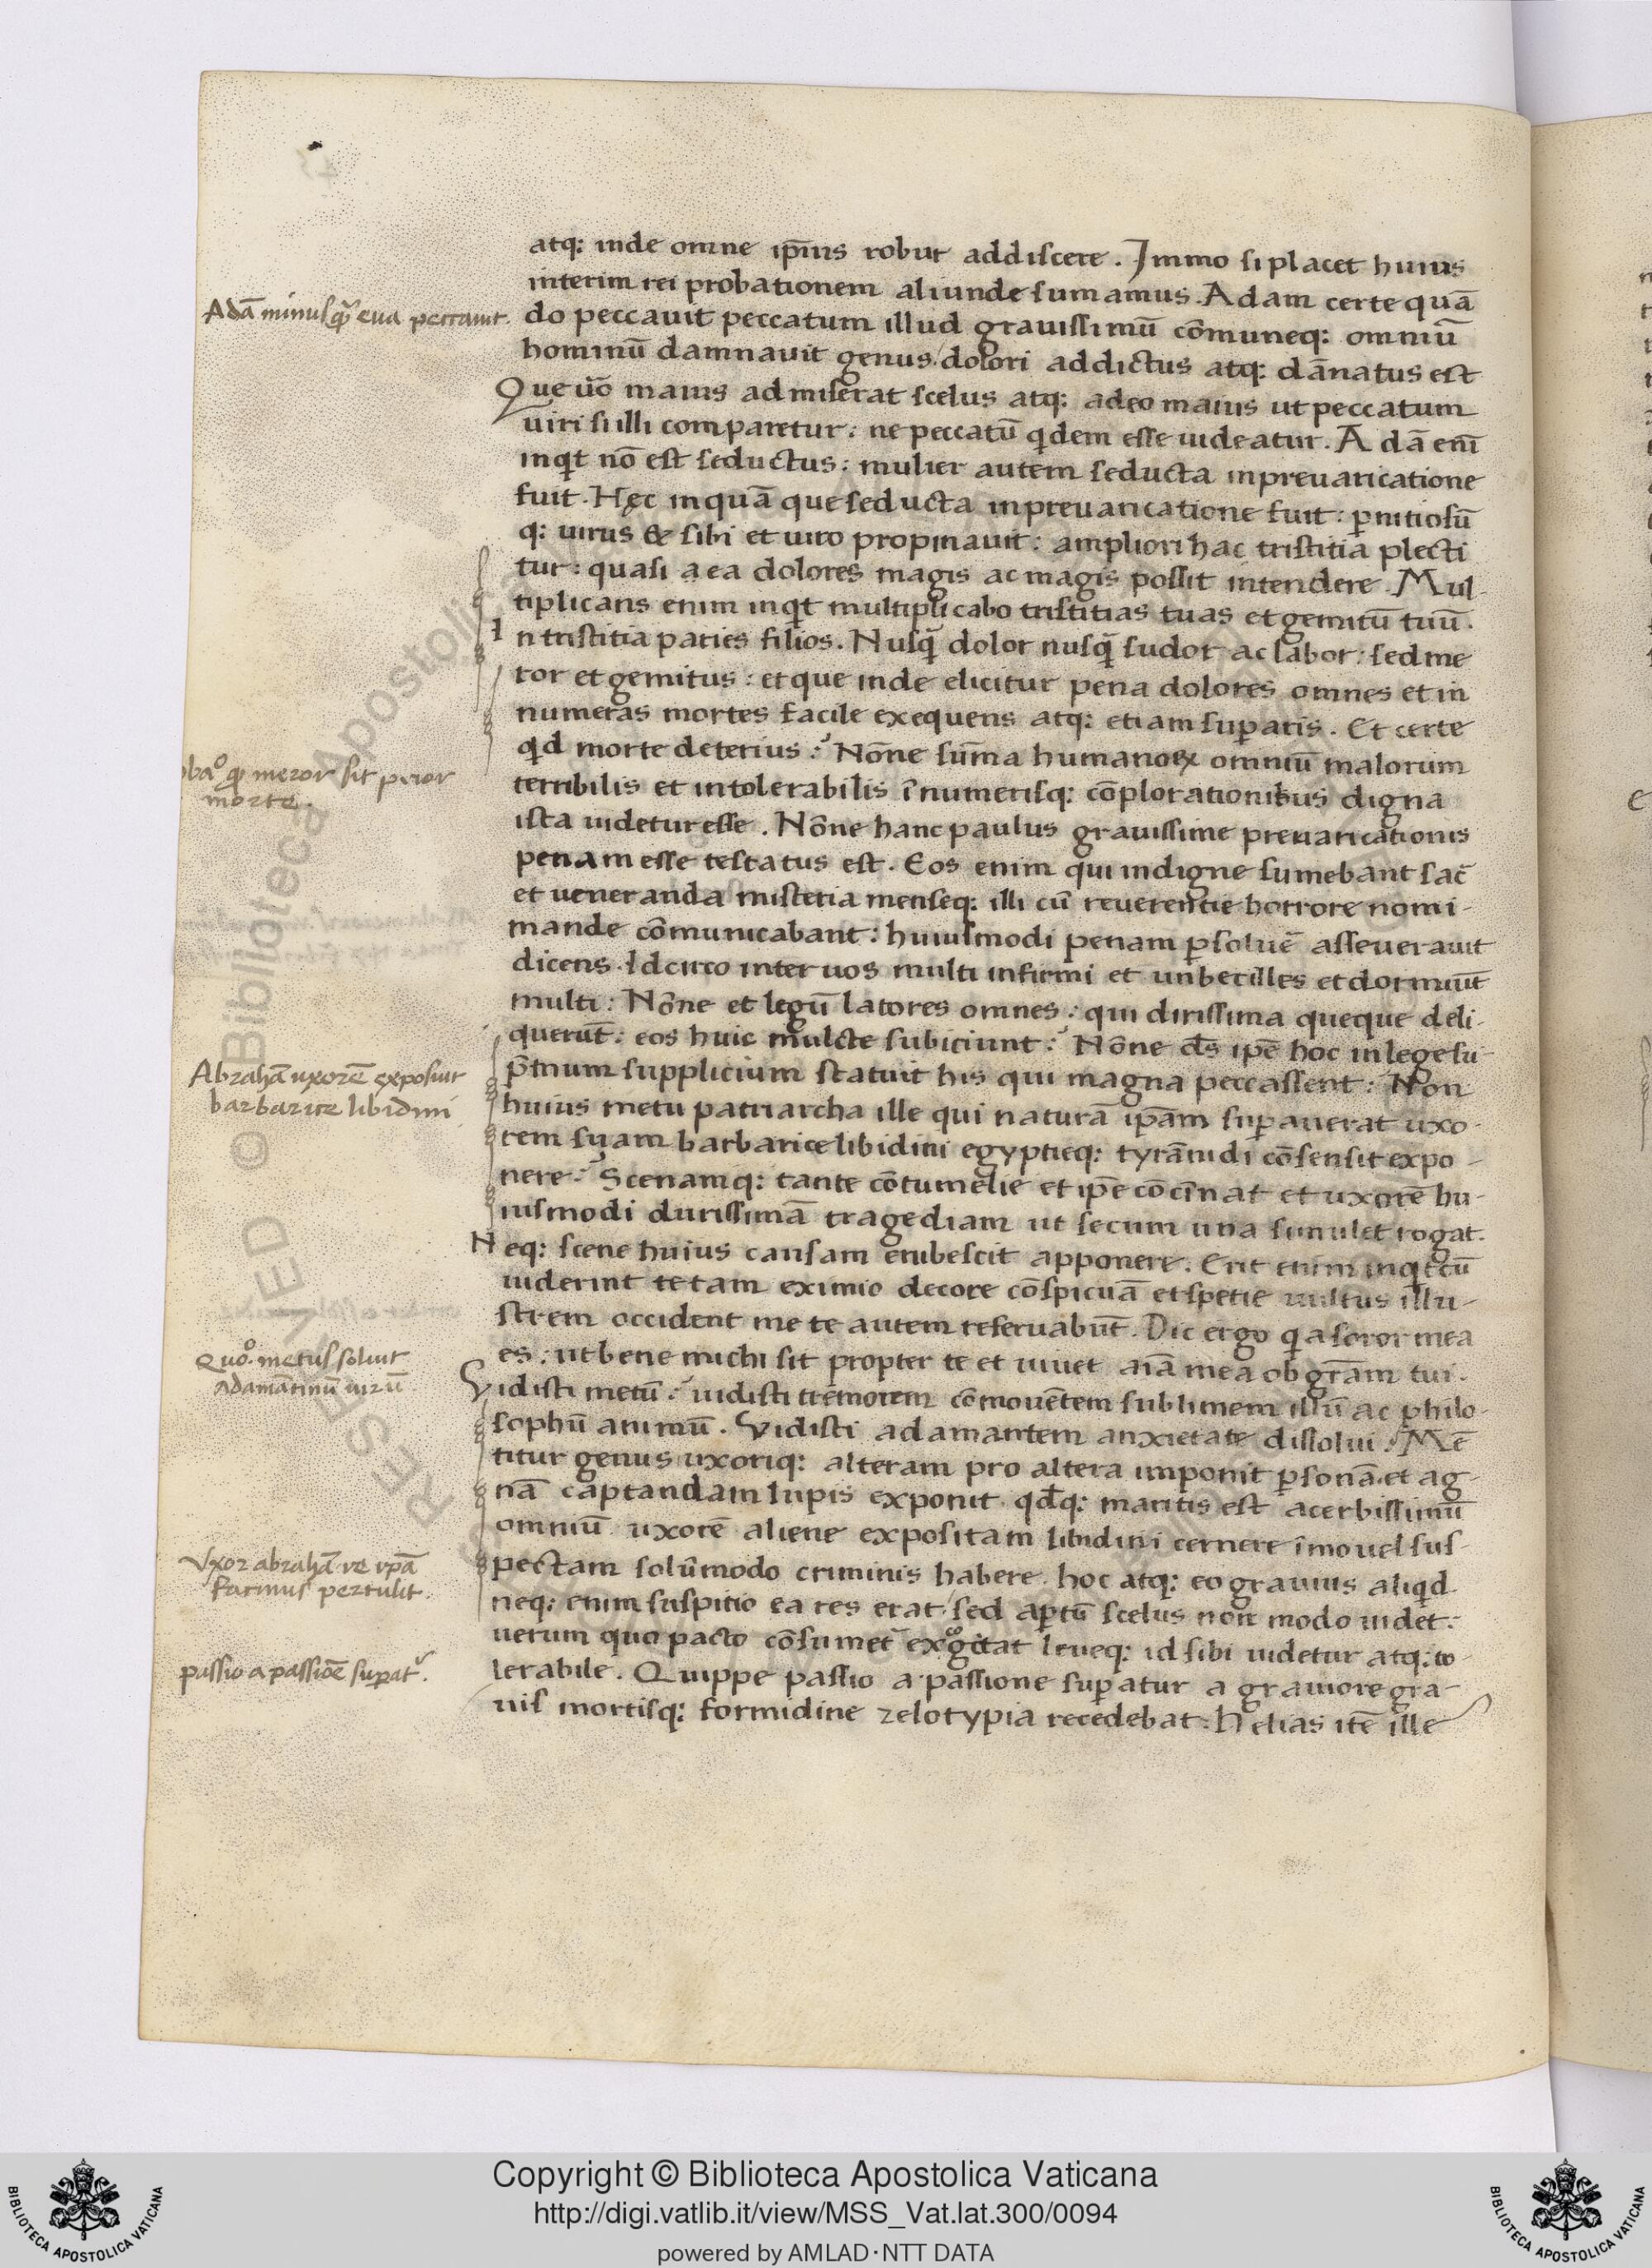 atq: inde omne ip̄ius robur addiscere. Immo si placet huius
interim rei probationem aliunde sumamus. Adam certe quā
Adā minusq̄ȝ eua peccauit.
do peccauit peccatum illud grauissimū cōmuneq: omniū
hominū damnauit genus / dolori addictus atq: dānatus est
Que ūo maius admiserat scelus atq: adeo maius ut peccatum
uiri si illi comparetur: ne peccatū qdem esse uideatur. Adā enī
inqt nō est seductus: mulier autem seducta in preuaricatione
fuit. Hęc inquā que seducta in preuaricatione fuit: pnitiosū
q: uirus & sibi et uiro propinauit: ampliori hac tristitia plecti
tur: quasi a ea dolores magis ac magis possit intendere. Mul-
tiplicans enim inqt multiplicabo tristitias tuas et gemitū tuū.
In tristitia paries filios. Nusq̄ dolor nusq̄ sudor ac labor: sed me
ror et gemitus: et que inde elicitur pena dolores omnes et in
numeras mortes facile exequens atq: etiam suparis. Et certe
qd morte deterius? Nōne sum̄a humanoꝝ omniū malorum
bao̊ q̄ meror sit peior
morte.
terribilis et intolerabilis īnumerisq: cōplorationibus digna
ista uidetur esse. Nōne hanc paulus grauissime preuaricationis
penam esse testatus est. Eos enim qui indigne sumebant sac̄
et ueneranda misteria menseq: illi cū reuerentie horrore nomi-
mande cōmunicabant: huiusmodi penam psoluē asseuerauit
dicens. Idcirco inter uos multi infirmi et unbecilles et dormiūt
multi: Nōne et legū latores omnes: qui dirissima queque deli-
querūt: eos huic mulcte subiciunt? Nōne d̄s ipē hoc in lege su-
Abrahā uxorē exposuit
barbarice libidini
p̄mum supplicium statuit his qui magna peccassent: Non
huius metu patriarcha ille qui naturā ip̄am supauerat uxo-
rem suam barbarice libidini egyptieq: tyrānidi cōsensit expo-
nere? Scenamq: tante cōtumelie et ipē concīnat et uxorē hu-
iusmodi durissimā tragediam ut secum una simulet rogat.
Neq: scene huius causam erubescit apponere. Erit enim inqt cū
uiderint te tam eximio decore cōspicuā et spetie uultus illu-
strem occident me te autem reseruabūt. Dic ergo q a soror mea
Quo̊ metus soluit
adamātinū uirū
es: ut bene michi sit propter te et uiuet aīa mea ob grām tui.
Vidisti metū? uidisti tremorem cōmouētem sublimem illū ac philo-
sophū animū. Vidisti adamantem anxietate dissolui? Mē
titur genus uxoriq: alteram pro altera imponit psonā et ag-
nā captandam lupis exponit. qd̄q: maritis est acerbissimū
omniū uxorē aliene expositam libidini cernere īmo uel sus-
Vxor abrahā re ip̄a
facinus pertulit.
pectam solūmodo criminis habere. hoc atq: eo grauius aliqd.
neq: enim suspitio ea res erat / sed aptū scelus non modo uidet:
uerum quo pacto cōsumet̄ exco̊gitat leueq: id sibi uidetur atq: to-
passio a passiōe supat᷑.
lerabile. Quippe passio a passione supatur a grauiore gra-
uis mortisq: formidine zelotypia recedebat: Helias itē ille
Copyright © Biblioteca Apostolica Vaticana
http://digi.vatlib.it/view/MSS_Vat.lat.300/0094
powered by AMLAD·NTT DATA
BIBLIOTECA APOSTOLICA VATICANA
BIBLIOTECA APOSTOLICA VATICANA